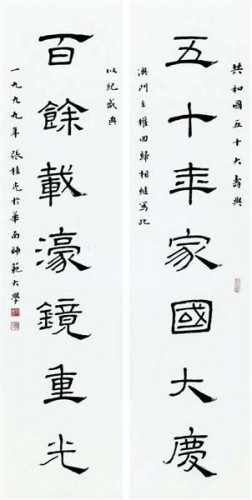 共和國五十大壽與
五十年家國大慶
澳門主權回歸相繼寫此
以紀盛典
百餘載濠鏡重光
一九九九年張桂光於華南師範大學